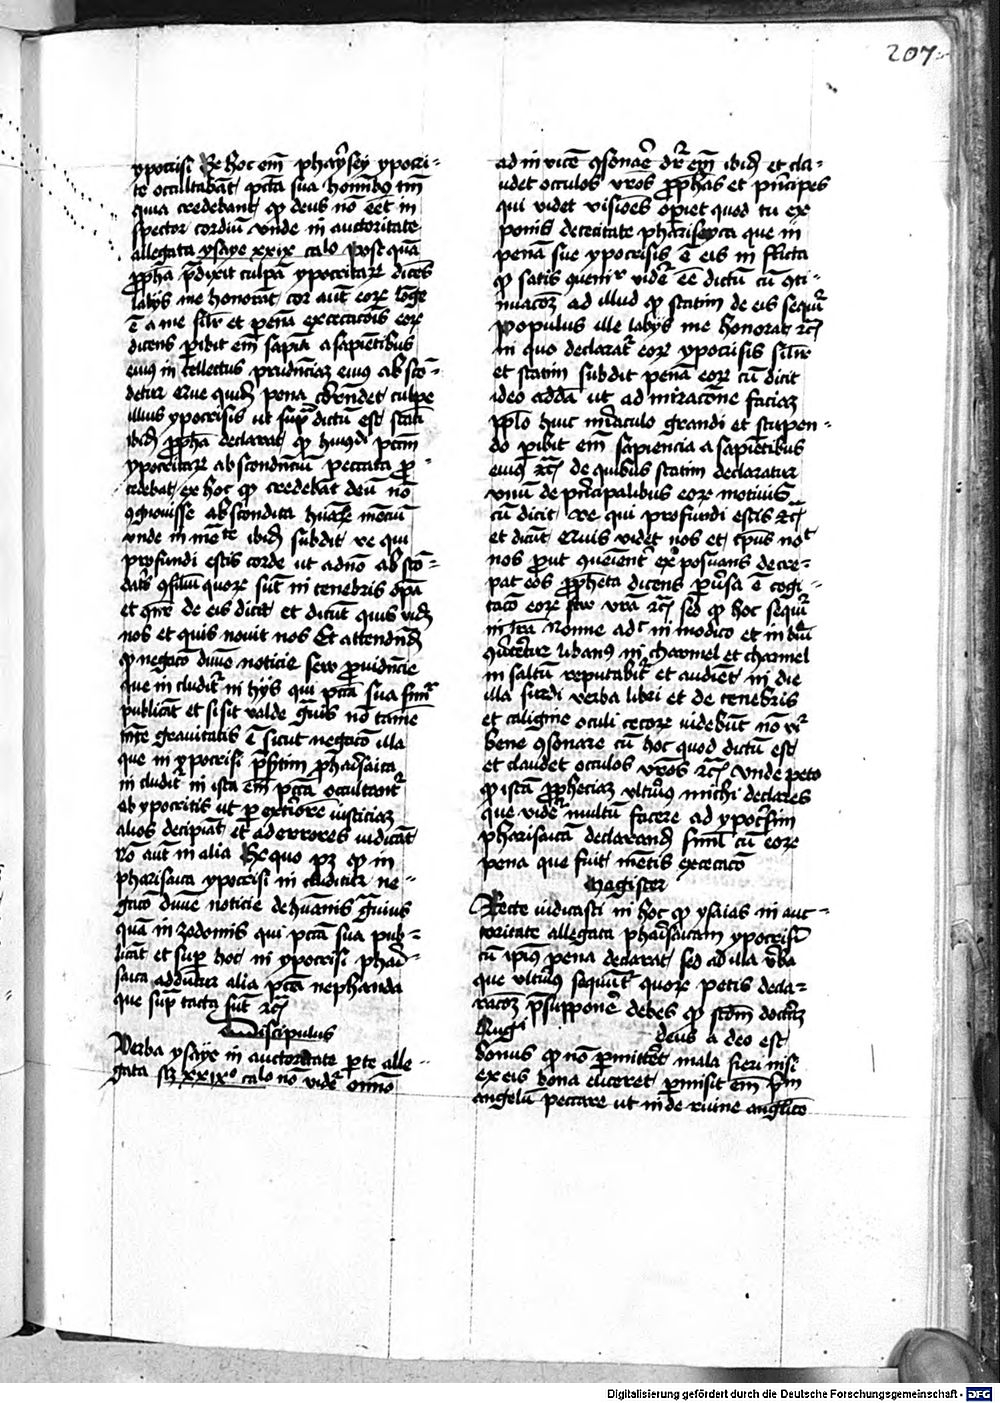 207
ypocrisi Ex hoc em̄ pharysey ypocri-
te occultabāt pctā sua homibꝰ tm̄
quia credebant qꝫ deus nō eēt in
spector cordiū vnde in auctoritate
allegata ysaye xxix calo post quā
ꝓphā p̄dixit culpā ypocritarꝝ dicēs
labijs me honorāt cor aut eorꝝ lōge
ē a me silr et penā excecacōis eorꝝ
dicens p̱ibit em̄ sapiā a sapiētibus
eius in tellectus prudn̄ciaꝫ eius ab scō-
detur Que quidē pena
illius ypocrisis ut supͣ dictū est statī
ibid ꝓphā declarat qꝫ huiꝰdi pctm̄
ypocritarꝝ ab scondn̄ciū peccata ꝓ-
cedebat ex hoc qꝫ credebāt deū nō
ꝯgnouisse ab scondita hūane mēciū
vnde in ibid subdit ve qui
profundi estis corde ut a dn̄o ab scō-
datis ꝯsiliū quorꝝ sūt in tenebris oꝑa
et de eis dicit et dicūt quis vidꝫ
nos et quis nouit nos Et attendn̄dū
qꝫ negacō diuīe noticie seu ꝓuidn̄cie
que in cludit in hijs qui pctā sua
publicāt et si sit valde gͣuis nō tamē
tāte grauitatis ē sicut negacō illa
que in ypocrisi p̄sertim pharisaica
in cludit in ista em̄ pctā occultant
ab ypocritis ut ꝑ exteriorē iusticiaꝫ
alios decipiāt et ad errores inducāt
nō aut in alia Ex quo pꝫ qꝫ in
pharisaica ypocrisi in cluditur ne-
gacō diuīe noticie de hūanis gͣuius
quā in zodomis qui pctā sua pub-
licāt et suꝑ hoc in ypocrisi phari-
saica addūtur alia pctā nephanda
que supͣ tacta sūt ꝛc̄
Discipulus
Verba ysaye in auctoritate ꝑ te alle-
gata sꝫ xxixͦ calo nō vidēt om̄no
ad in vicē ꝯsonare dr̄ em̄ ibid et cla-
udet occulos vrōs ꝓphas et principes
qui vidēt visiōes oꝑiet quod tu ex
ponis de cecitate phariseyca que in
penā sue ypocrisis ē eis in flicta
qꝫ satis ꝯuenir vidēt eē dictū cū ꝯti-
nuacōꝫ ad illud qꝫ statim de eis sequit
Populus ille labijs me honorat ꝛc̄
in quo declarat eorꝝ ypocrisis silr
et statim subdit penā eorꝝ cū dicit
ideo addā ut ad miracōne faciaꝫ
pplo huic miraculo grandi et stupen-
do ꝑibit em̄ sapiencia a sapiētibus
eius ꝛc̄ de quibus statim declaratur
vnū de principalibus eorꝝ motiuis
cū dicit ve qui profundi estis ꝛc̄
et dicūt Quis videt nos et
nos prout ꝯueniēt exposuans de cre-
pat eos ꝓpheta dicens ꝑuersa ē cogi-
tacō eorꝝ vrā ꝛc̄ sed qꝫ hoc sequit
in lrā Nonne adͨ in modico et in breui
ꝯuertetur libanus in charmel et charmel
in saltū reputabit et audiēt in die
illa surdi verba libri et de tenebris
et caligine oculi cecorꝝ videbūt nō vr
bene ꝯsonare cū hoc quod dictū est
et claudet occulos vrōs ꝛc̄ Vnde peto
qꝫ istā ꝓpheciaꝫ vltiꝰ michi declares
que vidēt multū facere ad ypocrisim
pharisaicā declarandā simul cū eorꝝ
pena que fuit mētis excecacō
Magister
Recte iudicasti in hoc qꝫ ysaias in auc-
toritate allegata pharisaicam ypocrisī
cū ipiꝰ pena declarat sed circa illa vba
que vltiꝰ sequūt quorꝝ petis decla-
racōꝫ p̄supponē debes qꝫ scdm doctrīꝫ
Augꝰ deus a deo est
bonus qꝫ nō ꝑmittēt mala fieri nisi
ex eis bona eliceret ꝑmisit em̄
angelū peccare ut inde ruine anglīce
Digitalisierung gefördert durch die Deutsche Forschungsgemeinschaft - DFG